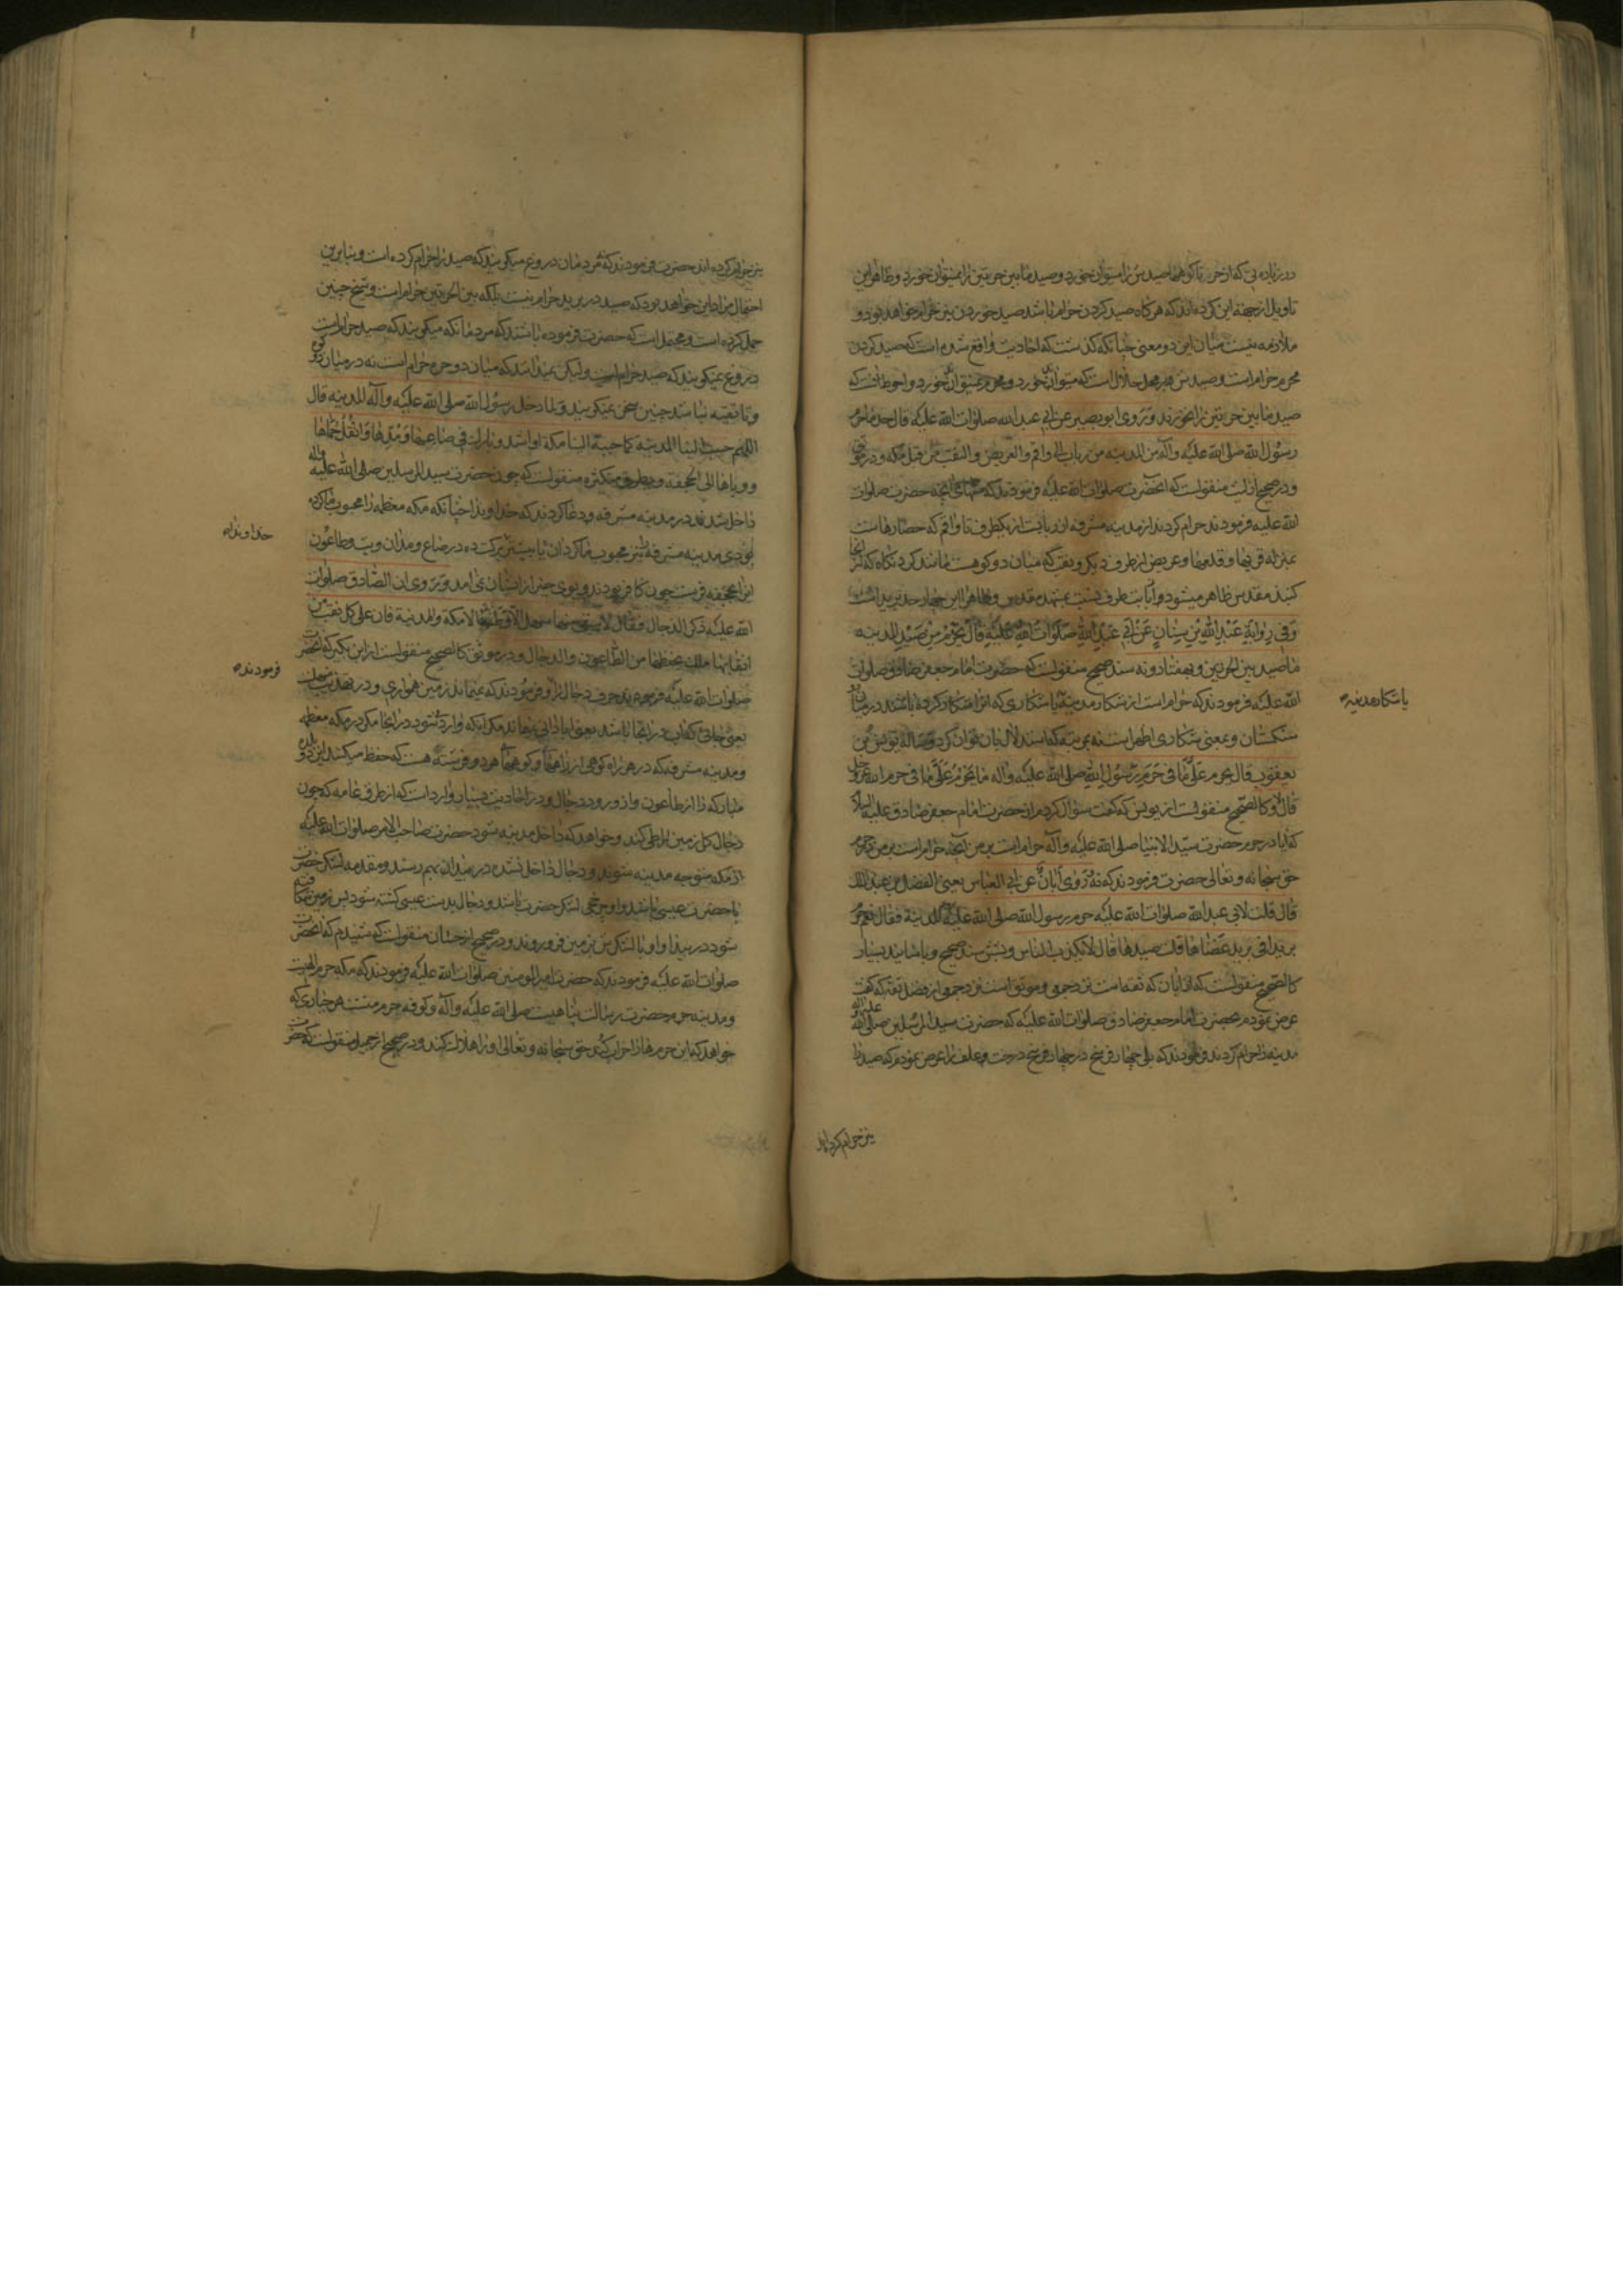 در زیاده بی که از حره تا کوهها صیدش را میتوان خورد و صید مابین حرتین را نمیتوان خورد و ظاهرا این
تاویل از جهة این کرده‌اند که هر کاه صید کردن حرام باشد صید خوردن نیز حرام خواهد بود و
ملازمه نیست میان این دو معنی چنانکه کذشت که احادیث واقع شده است که صید کردن
محرم حرام است و صیدش بر محل حلال است که میتوان خورد و محرم نمیتوان خورد و احوط انست که
صید مابین حرتین را نخورند و روی ابو بصیر عن ابی عبد الله صلوات الله علیه قال حد ما حرم
رسول الله صلی الله علیه وآله من المدینه من رباب الی واقم والعریض والنقب من قبل مکه و در موثق
و در صحیح ازو منقولست که انحضرت صلوات الله علیه فرمودند که منتهای انچه حضرت صلوات
الله علیه فرمودند حرام کردند از مدینه مشرفه از ربابست از یکطرف تا واقم که حصارهاست
بمنزله قریها و قلعها و عریض از طرف دیکر و نقب که میان دو کوهست مانند کردنکاه که از انجا
کنبد مقدس ظاهر میشود و آنات طرف نسبت بمشهد مقدس و ظاهرا این چهار حد برید است
وفی روایة عبد الله بن سنان عن ابی عبد الله صلوات الله علیه قال یحرم من صید المدینه
ما صید بین الحرتین و بهفتاد و نه سند صحیح منقولست که حضرت امام جعفر صادق صلوات
الله علیه فرمودند که حرام است از شکار مدینه یا شکاری که انرا شکار کرده باشند در میان دو
سنکستان و معنی شکاری اظهر است نه بمرتبه که استدلال بان توان کرد وساله یونس بن
یعقوب قال یحرم علی ما فی حرم رسول الله صلی الله علیه واله ما یحرم علی ما فی حرم الله عز وجل
قال لا و کالصحیح منقولست از یونس که کفت سؤال کردم از حضرت امام جعفر صادق علیه السلام
که آیا در حرم حضرت سید الانبیا صلی الله علیه وآله حرام است بر من انچه حرام است بر من در حرم
حق سبحانه و تعالی حضرت فرمودند که نه وروی ابان عن ابی العباس یعنی الفضل بن عبد الملک
قال قلت لابی عبد الله صلوات الله علیه حرم رسول الله صلی الله علیه وآله المدینة فقال نعم حرم
بریدا فی برید عضاها قلت صیدها قال لا یکذب الناس و بشش سند صحیح و باسانید بسیار
کالصحیح منقولست که از ابان که ثقه است نزد جمعی و موثق است نزد جمعی از فضل ثقه که کفت
عرض نمودم بحضرت امام جعفر صادق صلوات الله علیه که حضرت سید المرسلین صلی الله علیه وآله
مدینه را حرام کردند فرمودند که بلی چهار فرسخ در چهار فرسخ درخت و علف را عرض نمودم که صید را
یا شکار مدینه
نیز حرام کرده‌اند
نیز حرام کرده‌اند حضرت فرمودند که مردمان دروغ میکویند که صید را حرام کرده است و بنابرین
احتمال مراد این خواهد بود که صید در برید حرام نیست بلکه بین الحرتین حرام است و شیخ چنین
حمل کرده است و محتمل است که حضرت فرموده باشند که مردمانکه میکویند که صید حرام است
دروغ نمیکویند که صید حرام است و لیکن نمیدانند که میان دو حره حرام است نه در میان دو کوه
و تا تقیه نباشد چنین سخن نمیکویند ولما دخل رسول الله صلی الله علیه وآله المدینه قال
اللهم حبب الینا المدینه کما حببت الینا مکه او اشد و بارک فی صاعها ومدها وانقل حماها
و وباها الی الجحفة و بطرق متکثره منقولست که چون حضرت سید المرسلین صلی الله علیه وآله
داخل شدند در مدینه مشرفه و دعا کردند که خداوندا چنانکه مکه معظمه را محبوب ما کرده
بودی مدینه مشرفه را نیز محبوب ما کردان یا بیشتر و برکت ده در صاع و مد ان و تب و طاعون
انرا بجحفه فرست چون کافر بودند و بوی خیر از ایشان نمی امد وروی ان الصادق صلوات
الله علیه ذکر الدجال فقال لا یبقی منها سهل الا وطئه الا مکة والمدینة فان علی کل نقب من
انقابها ملک یحفظها من الطاعون والدجال و در موثق کالصحیح منقولست از ابن بکیر که انحضرت
صلوات الله علیه فرمودند حرف دجال را و فرمودند که نمیماند زمین همواری و در تهذیب منهل
یعنی جائی که اب در انجا باشد یعنی ابادانی نمیماند مکر انکه وارد شود در انجا مکر در مکه معظمه
و مدینه مشرفه که در هر راه کوهی از راهها و کوهها هر دو فرشته هست که حفظ میکنند این دو بلده
مبارکه را از طاعون و از ورود دجال و در احادیث بسیار وارد است که از طرق عامه که چون
دجال کل زمین را طی کند و خواهد که داخل مدینه شود حضرت صاحب الامر صلوات الله علیه
از مکه متوجه مدینه شوند و دجال داخل نشده در بیدا بهم رسند و مقدمه لشکر حضرت
با حضرت عیسی باشد و او سرخیل لشکر حضرت باشد و دجال بدست عیسی کشته شود پس زمین شکافته
شود در بیدا و او با لشکرش بزمین فرو روند و در صحیح از حسان منقولست که شنیدم که انحضرت
صلوات الله علیه فرمودند که حضرت امیر المومنین صلوات الله علیه فرمودند که مکه حرم الهیست
و مدینه حرم حضرت رسالت پناهیست صلی الله علیه وآله و کوفه حرم منست هر جباری که
خواهد که این حرمها را خراب کند حق سبحانه و تعالی او را هلاک کند و در صحیح از جمیل منقولست که حضرت
خداوندا
فرمودند